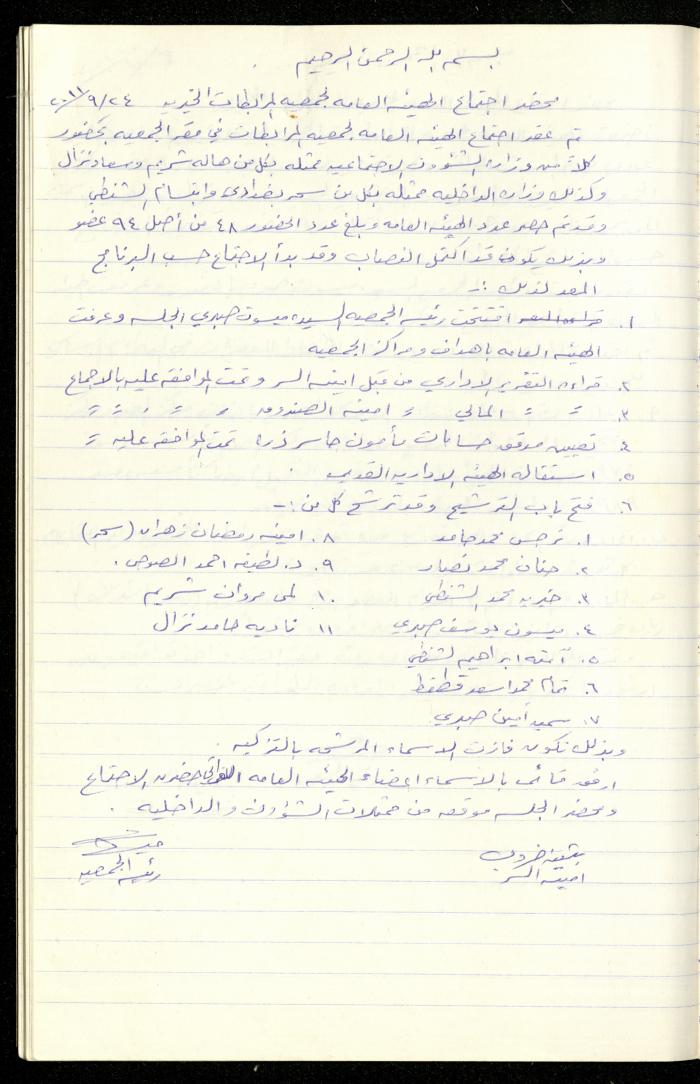 بسم الله الرحمن الرحيم
محضر اجتماع الهيئه العامه لجمعيه المرابطات الخيريه ٢٠١١/٩/٢٤
تم عقد اجتماع الهيئه العامه لجمعيه المرابطات في مقر الجمعيه بحضور
كلاً من وزاره الشؤون الاجتماعيه ممثله بكل من هاله شريم وسعاد نزال
وكذلك وزاره الداخليه ممثله بكل من سحر بغدادي وابتسام الشنطي
وقد تم حصر عدد الهيئه العامه وبلغ عدد الحضور ٤٨ من أصل ٩٤ عضو
وبذلك يكون قد اكتمل النصاب وقد بدأ الاجتماع حسب البرنامج
المعد لذلك :-
١. افتتحت رئيسه الجمعيه السيده ميسون صبري الجلسه وعرفت
الهيئه العامه باهداف ومراكز الجمعيه
٢. قراءه التقرير الاداري من قبل امينه السر وتمت الموافقه عليه بالاجماع
٣. = = المالي = امينه الصندوق = = = =
٤. تعيين مدقق حسابات مأمون جاسر تمت الموافقه عليه =
٥. استقاله الهيئه الاداريه القديمه .
٦. فتح باب الترشيح وقد ترشح كل من :-
١. نرجس محمد حامد ٨. امينه رمضان زهران (سحر)
٢. حنان محمد نصار ٩. د. لطيفه احمد الصوص .
٣. خيريه محمد الشنطي ١٠. لمى مروان شريم
٤. ميسون يوسف صبري ١١. ناديه حامد نزال
٥. آمنه ابراهيم الشنطي
٦. تمام محمد اسعد قطقط
٧. سميه أمين صبري
وبذلك تكون فازت الاسماء المرشحه بالتزكيه .
ارفق قائمه بالاسماء اعضاء الهيئه العامه اللواتي حضرن الاجتماع
ومحضر الجلسه موقعه من ممثلات الشؤون والداخليه .
بثينه
امينه السر
رئيسه الجمعيه